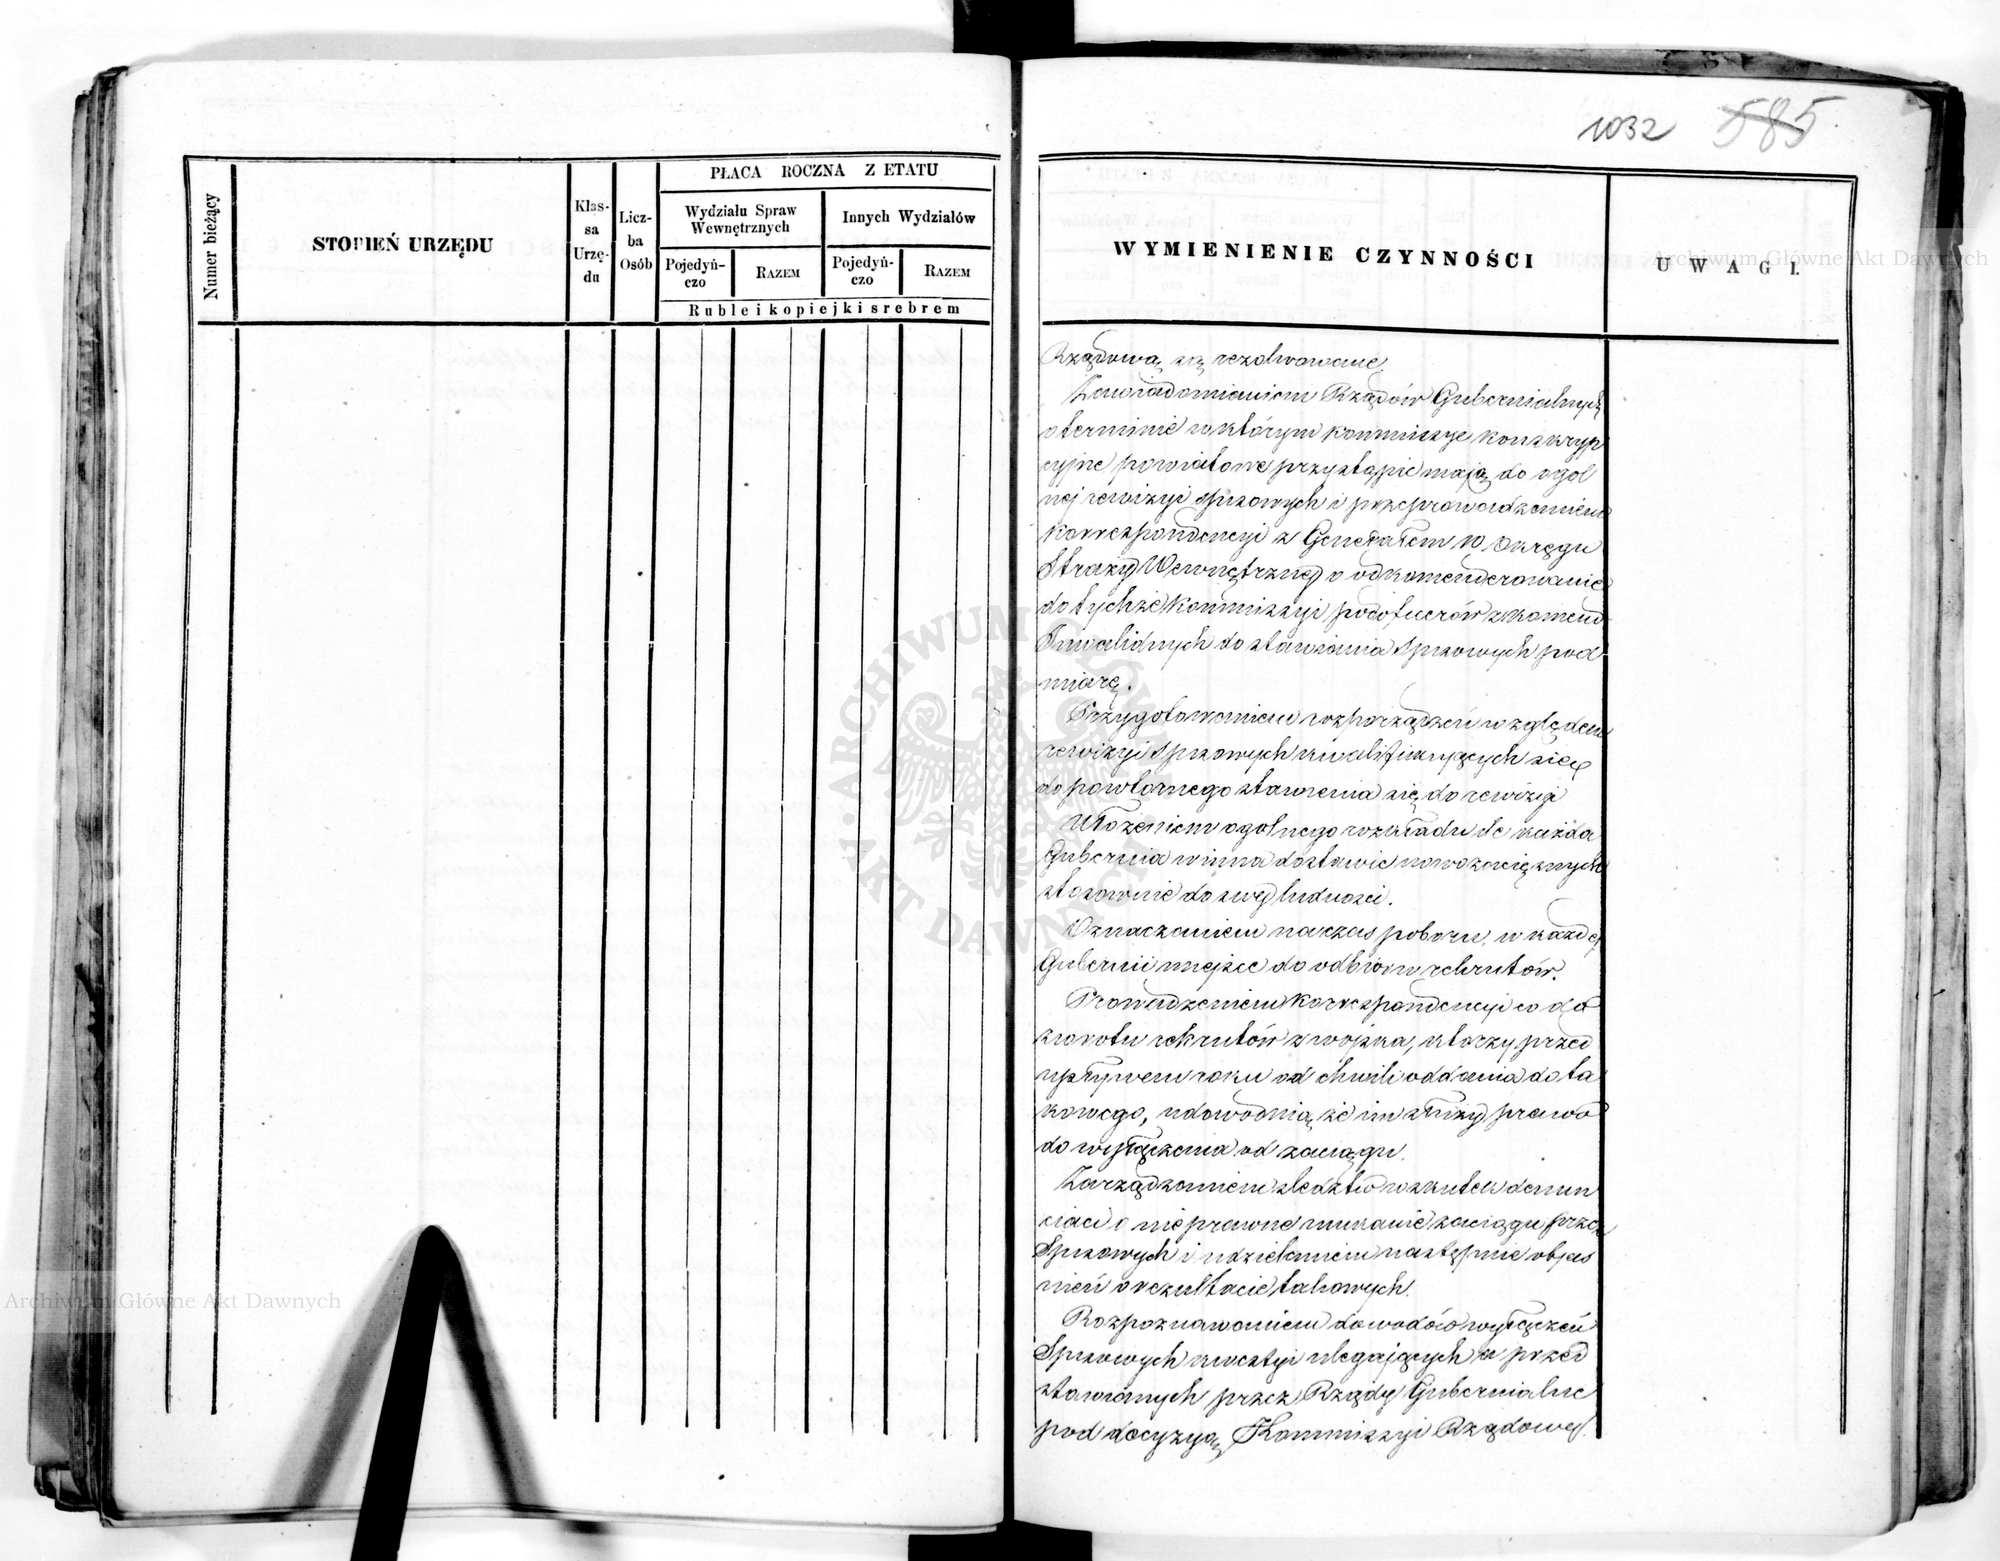 1032 585
Numer bieżący
STOPIEŃ URZĘDU
Klas-
sa
Urzę-
du
Licz-
ba
Osób
PŁACA ROCZNA Z ETATU
Wydziału Spraw
Wewnętrznych
Innych Wydziałów
Pojedyń-
czo
RAZEM
Pojedyń-
czo
RAZEM
Ruble i kopiejki srebrem
WYMIENIENIE CZYNNOŚCI
UWAGI.
Rządową są rezolwowane.
Zawiadomianiem Rządów Gubernialnych
o terminie w którym kommissye konskryp
cyjne powiatowe przystąpić mają do ogol
nej rewizyi spisowych i przeprowadzeniem
korrespondencyi z Generałem 10 Okręgu
Straży Wewnętrznej o odkomenderowanie
do tychże Kommissyi podoficerów z komend
Inwalidnych do stawiania spisowych pod
miarę.
Przygotowaniem rozporządzeń względem
rewizyi spisowych kwalifikujących się
do powtornego stawienia się do rewizyi
Ułożeniem ogolnego rozkładu ile każda
Gubernia winna dostawić nowozaciężnych
stosownie do swej ludności.
Oznaczaniem na czas poboru, w każdej
Gubernii miejsc do odbioru rekrutów.
Prowadzeniem korrespondencyi co do
zwrotu rekrutów z wojska, ktorzy przed
upływem roku od chwili oddania do ta
kowego, udowodnią że im służy prawo
do wyłączenia od zaciągu.
Zarządzaniem śledztw w skutek denun
ciacii o nieprawne unikanie zaciągu przez
Spisowych i udzielaniem następnie objas
nień o rezultacie takowych.
Rozpoznawaniem dowodów wyłączeń
Spisowych kwestyi ulegających a przed
stawianych przez Rządy Gubernialne
pod decyzyą Kommissyi Rządowej.
Archiwum Główne Akt Dawnych
Archiwum Główne Akt Dawnych